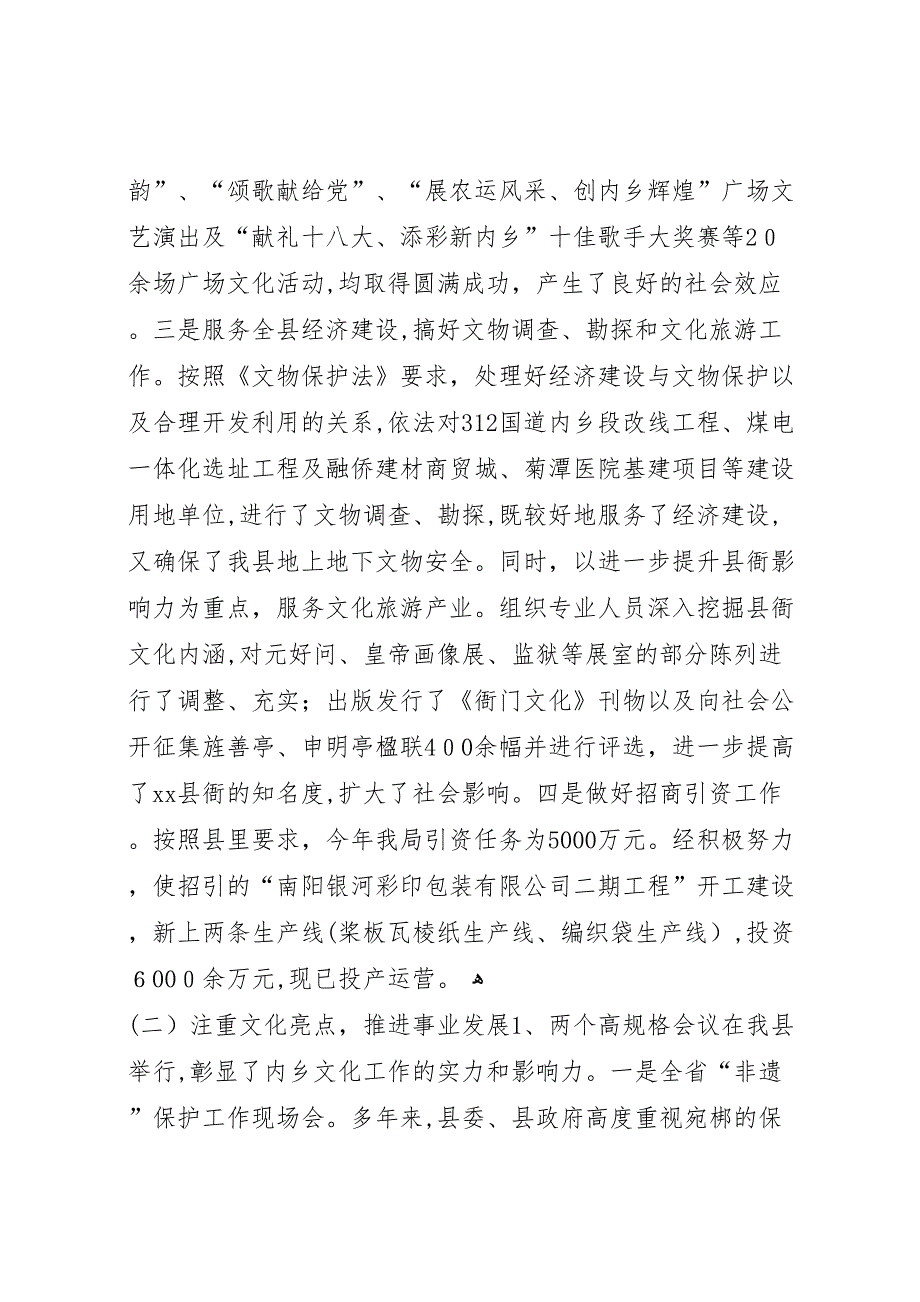 韵”、“颂歌献给党”、“展农运风采、创内乡辉煌”广场文
艺演出及“献礼十八大、添彩新内乡”十佳歌手大奖赛等20
余场广场文化活动,均取得圆满成功，产生了良好的社会效应
。三是服务全县经济建设,搞好文物调查、勘探和文化旅游工
作。按照《文物保护法》要求，处理好经济建设与文物保护以
及合理开发利用的关系,依法对312国道内乡段改线工程、煤电
一体化选址工程及融侨建材商贸城、菊潭医院基建项目等建设
用地单位,进行了文物调查、勘探,既较好地服务了经济建设,
又确保了我县地上地下文物安全。同时，以进一步提升县衙影
响力为重点，服务文化旅游产业。组织专业人员深入挖掘县衙
文化内涵,对元好问、皇帝画像展、监狱等展室的部分陈列进
行了调整、充实；出版发行了《衙门文化》刊物以及向社会公
开征集旌善亭、申明亭楹联400余幅并进行评选，进一步提高
了xx县衙的知名度,扩大了社会影响。四是做好招商引资工作
。按照县里要求，今年我局引资任务为5000万元。经积极努力
，使招引的“南阳银河彩印包装有限公司二期工程”开工建设
，新上两条生产线(桨板瓦棱纸生产线、编织袋生产线）,投资
6000余万元,现已投产运营。ﻫ
(二）注重文化亮点，推进事业发展1、两个高规格会议在我县
举行,彰显了内乡文化工作的实力和影响力。一是全省“非遗
”保护工作现场会。多年来,县委、县政府高度重视宛梆的保